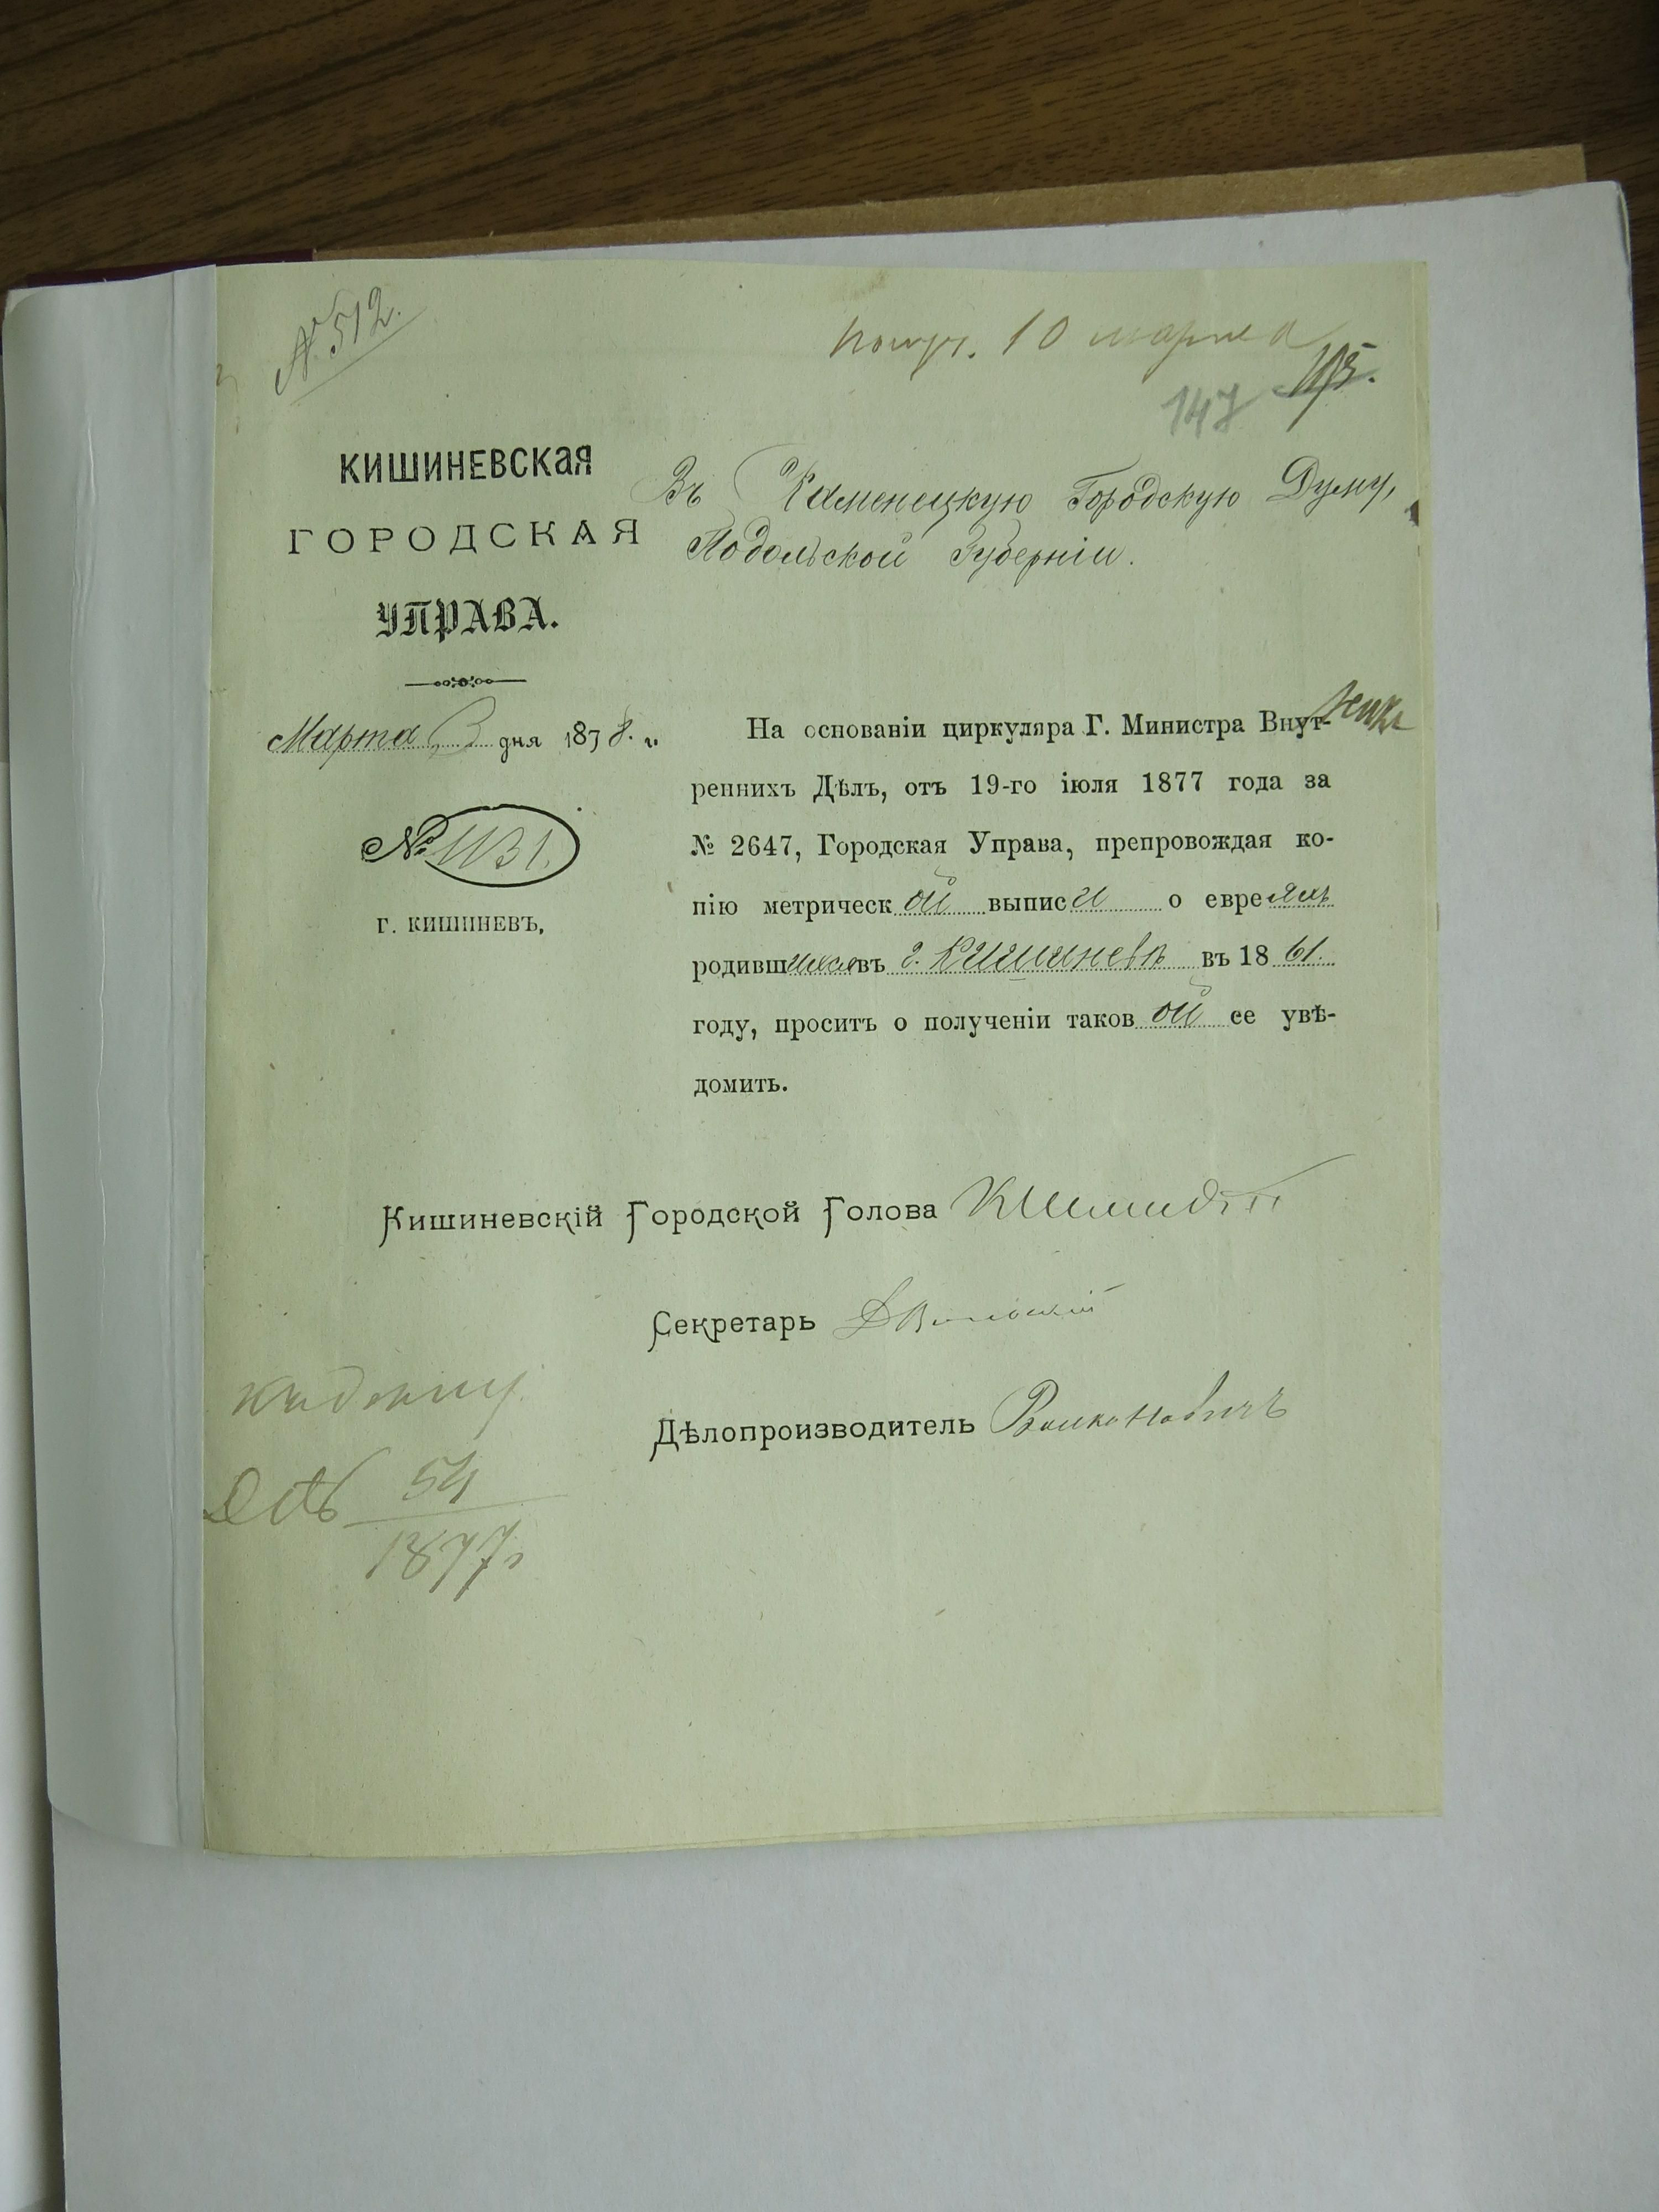 № 512.
получ. 10 марта
147 115.
КИШИНЕВСКАЯ
ГОРОДСКАЯ
УПРАВА.
Марта 3 дня 1878. г.
№ 1131.
Г. КИШИНЕВЪ,
Въ Каменецкую Городскую Думу,
Подольской Губерніи.
На основаніи циркуляра Г. Министра Внут-
реннихъ Дѣлъ, отъ 19-го іюля 1877 года за
№ 2647, Городская Управа, препровождая ко-
пію метрической выписи о евреяхъ
родившихся въ г. Кишиневѣ въ 1861.
году, проситъ о полученіи таковой ее увѣ-
домить.
Кишиневскій Городской Голова КШмидтъ
Секретарь
Дѣлопроизводитель
къ дѣлу
54
1877 г